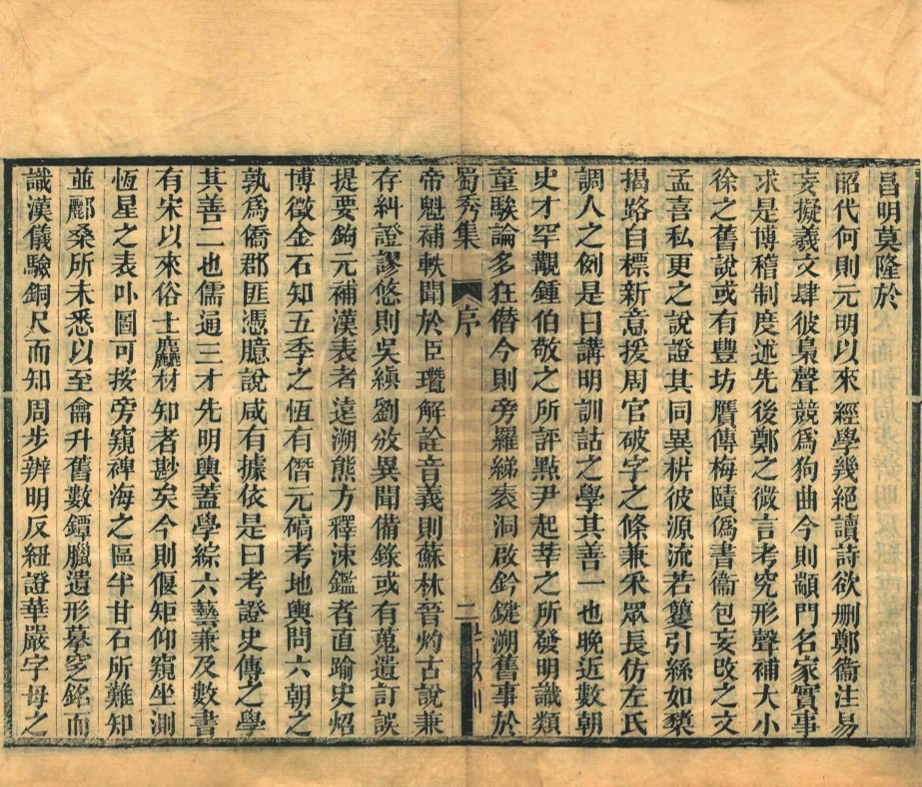 昌明莫隆於
昭代何則元明以來經學幾絕讀詩欲刪鄭衞注易
妄擬羲文肆彼梟聲競爲狗曲今則顓門名家實事
求是博稽制度述先後鄭之微言考究形聲補大小
徐之舊說或有豐坊贋傳梅賾僞書衞包妄改之文
孟喜私更之說證其同異枿彼源流若籆引絲如槷
揭路自標新意援周官破字之條兼釆眾長仿左氏
調人之例是曰講明訓詁之學其善一也晚近數朝
史才罕覯鍾伯敬之所評點尹起莘之所發明識類
童騃論多狂僭今則旁羅綈袠洞啟鈐鍵溯舊事於
蜀秀集
序
二
帝魁補軼聞於臣瓚解詮音義則蘇林晉灼古說兼
存糾證謬悠則吳縝劉攽異聞備錄或有蒐遺訂誤
提要鉤元補漢表者遠溯熊方釋涑鑑者直踰史炤
博徵金石知五季之恆有僭元碻考地輿問六朝之
孰爲僑郡匪憑臆說咸有據依是曰考證史傳之學
其善二也儒通三才先明輿蓋學綜六藝兼及數書
有宋以來俗士麤材知者尠矣今則偃矩仰窺坐測
恆星之表卟圖可按旁窺裨海之區半甘石所難知
並酈桑所未悉以至龠升舊數鐔臘遺形摹窆銘而
識漢儀驗銅尺而知周步辨明反紐證華嚴字母之